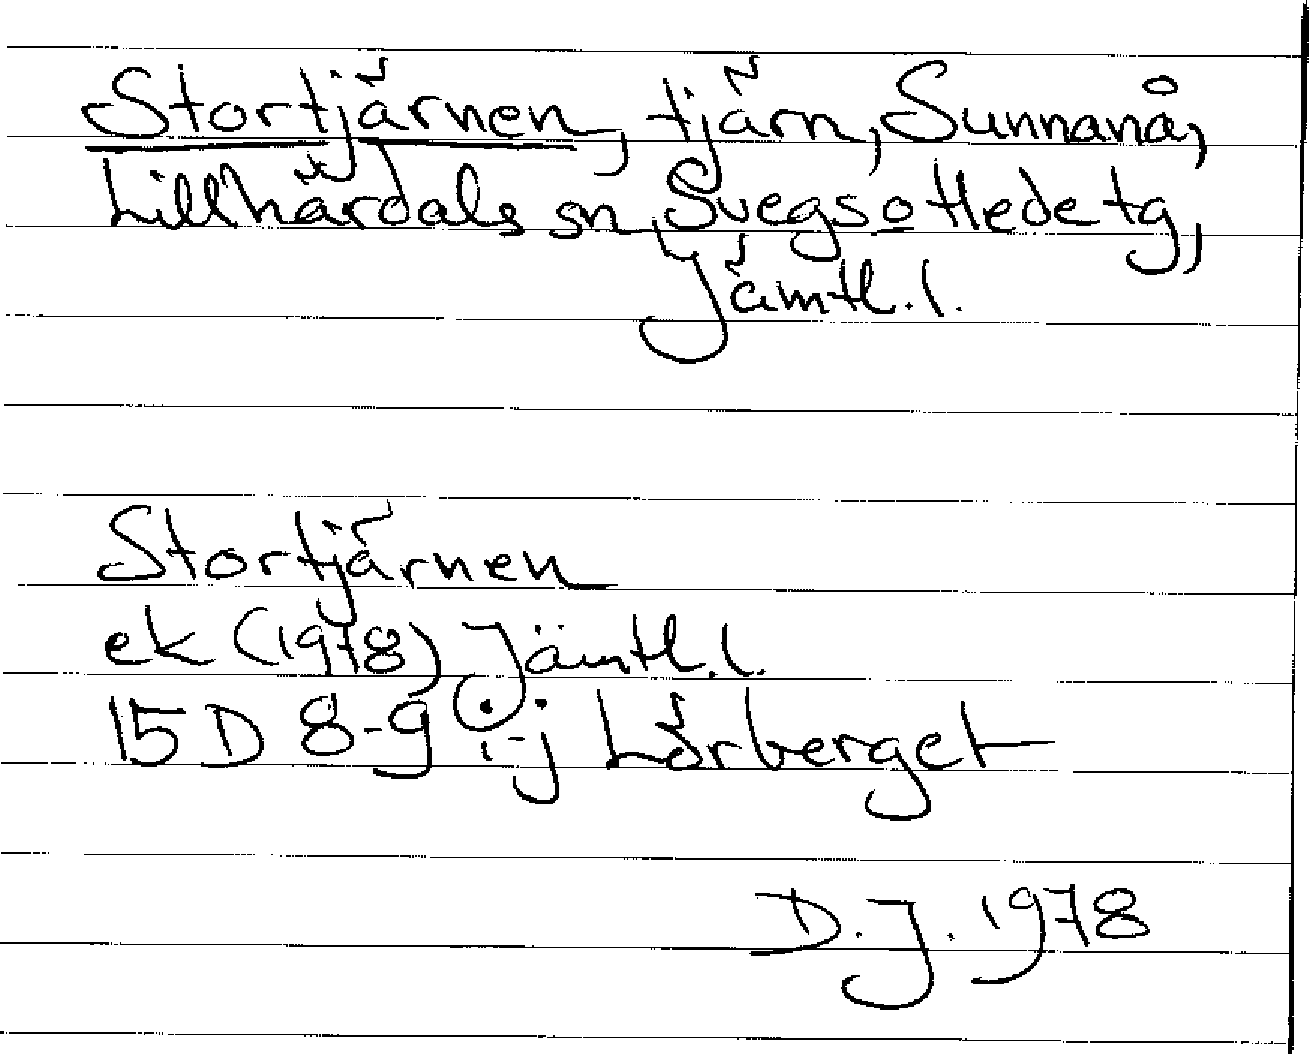 Stortjärnen, tjärn, Sunnanå,
Lillhärdals sn, Svegs o Hede tg,
Jämtl. l.
Stortjärnen
ek (1978) Jämtl. l.
15 D 8-9 i-j Lörberget
D. J. 1978